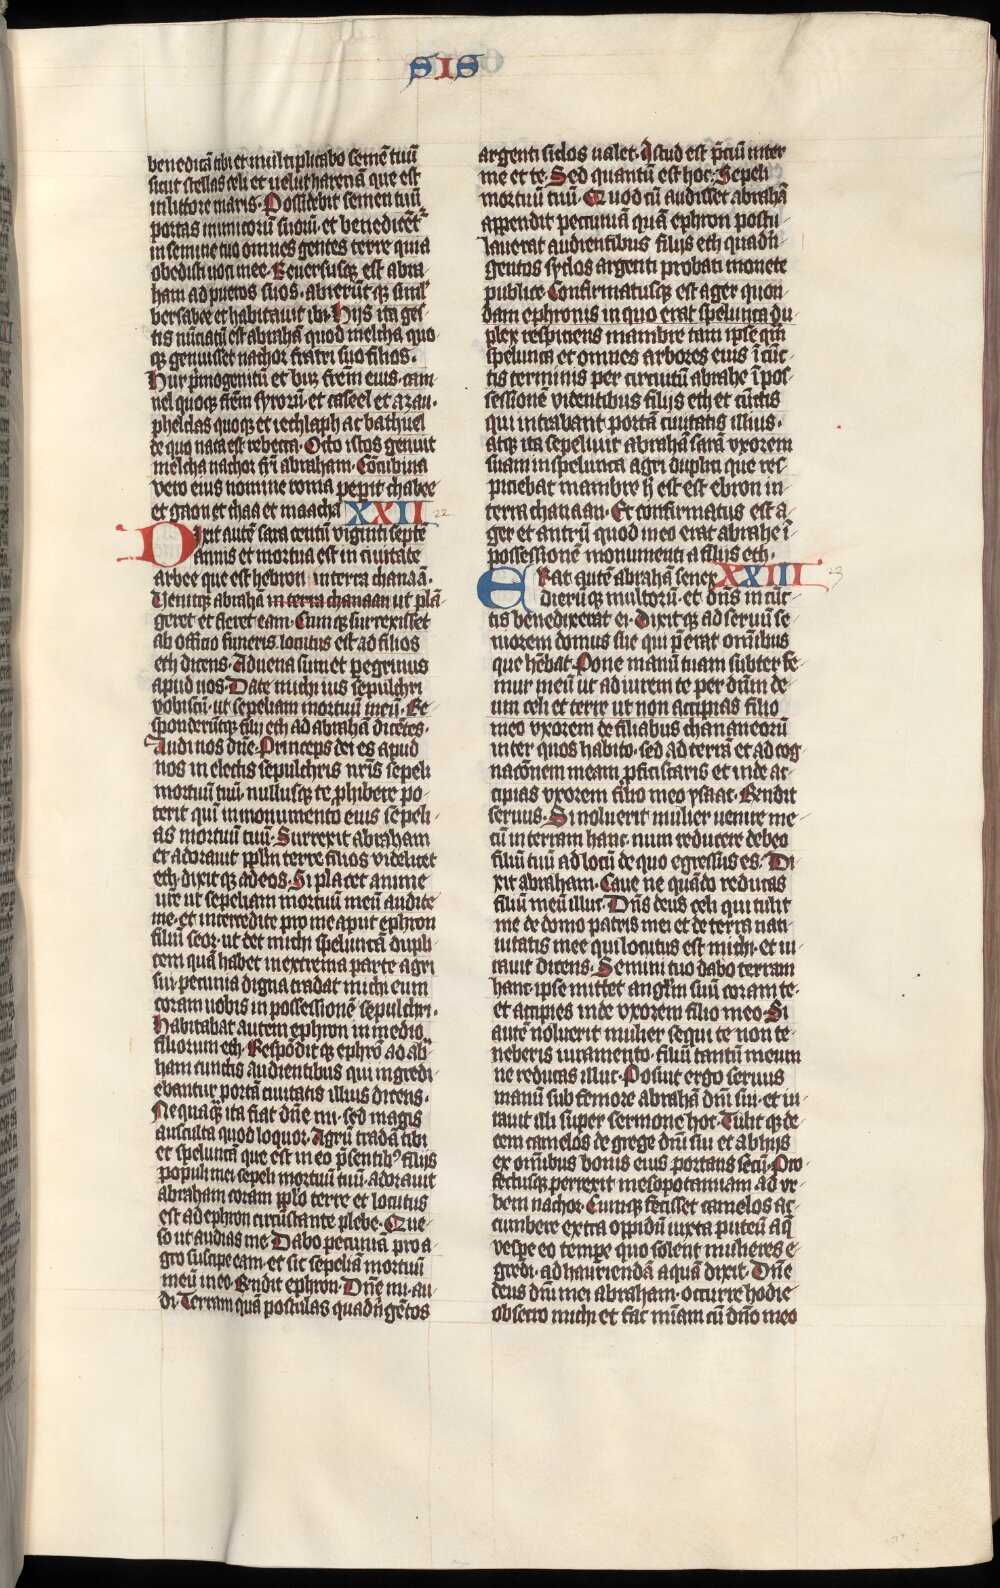 SIS
benedicā tibi et multiplicabo semē tuū
sicut stellas celi et velut harenā que est
in littore maris. Possidebit semen tuū
portas inimicorū suorū et benedicēt᷑
in semine tuo omnes gentes terre quia
obedisti voci mee. Reversusqꝫ est abra
ham ad pueros suos. abierūtqꝫ siml᷑
bersabee et habitavit ibi. Hijs ita ges
tis nūciatū est abrahā quod melcha quo
qꝫ genuisset nachor fratri suo filios.
Hur p̄mogenitū et buz frēm eius. cam
uel quoqꝫ frēm syrorū. et caseel et azau.
pheldas quoqꝫ et iedhlaph ac bathuel
de quo nata est rebecca. Octo istos genuit
melcha nachor fr̄i abraham. Cōcubina
vero eius nomine roma peperit chabee
et gaon et thaa et maacha XXII 22
Dixit autē sara centū viginti septē
annis et mortua est in civitate
arbee que est hebron in terra chanaā.
Venitqꝫ abrahā in terra chanaan ut plā
geret et fleret eam. Cumqꝫ surrexisset
ab officio funeris locutus est ad filios
eth dicens. Advena sum et peregrinus
apud vos. Date michi ius sepulchri
vobiscū. ut sepeliam mortuū meū. Re
sponderūtqꝫ filij eth ad abrahā dicētes.
Audi nos dn̄e. Princeps dei es apud
nos in electis sepulchris nr̄is sepeli
mortuū tuū. nullusqꝫ te ꝓhibere po
terit quī in monumento eius sepeli
as mortuū tuū. Surrexit abraham
et adoravit pplm terre filios videlicet
eth. dixitqꝫ ad eos. Si placet anime
vr̄e ut sepeliam mortuū meū audite
me. et intercedite pro me aput ephron
filiū seor. ut det michi speluncā dupli
cem quā habet in extrema parte agri
sui. pecunia digna tradat michi eum
coram vobis in possessionē sepulchri.
Habitabat autem ephron in medio
filiorum eth. Respōditqꝫ ephrō ad ab
ham cunctis audientibus qui ingredi
ebantur portā civitatis illius dicens.
Nequaqꝫ ita fiat dn̄e mi. sed magis
ausculta quod loquor. Agrū tradā tibi
et speluncā que est in eo p̄sentibꝰ filijs
populi mei. sepeli mortuū tuū. adoravit
abraham coram pplo terre et locutus
est ad ephron circūstante plebe. Que
so ut audias me. Dabo pecuniā pro a
gro suscipe eam. et sic sepeliā mortuū
meū in eo. Rn̄dit ephron. Dn̄e mi. au
di. Terram quā postulas quadrīgētos
argenti siclos valet. Istud est p̄ciū inter
me et te. Sed quantū est hoc. Sepeli
mortuū tuū. Quod cū audisset abrahā
appendit pecuniā quā ephron postu
laverat audientibus filijs eth quadrī
gentos syclos argenti probati monete
publice. Confirmatusqꝫ est ager quon
dam ephronis in quo erat spelunca du
plex respiciens mambre tam ipse qm̄
spelunca et omnes arbores eius ī cūc
tis terminis per circuitū abrahe ī pos
sessionē videntibus filijs eth et cūctis
qui intrabant portā civitatis illius.
atqꝫ ita sepelivit abrahā sarā vxorem
suam in spelunca agri duplici que res
piciebat mambre h̄ est est ebron in
terra chanaan. Et confirmatus est a
ger et antrū quod in eo erat abrahe ī
possessionē monumenti a filijs eth.
Erat autē abrahā senex XXIII 23
dierūqꝫ multorū. et dn̄s in cūc
tis benedixerat ei. Dixitqꝫ ad servū se
niorem domus sue qui p̄erat omībus
que hēbat. Pone manū tuam subter fe
mur meū ut adiurem te per dn̄m de
um celi et terre ut non accipias filio
meo vxorem de filiabus chananeorū
inter quos habito. sed ad terrā et ad cog
natōnem meam ꝓficiscaris et inde ac
cipias vxorem filio meo ysaac. Rn̄dit
servus. Si noluerit mulier venire me
cū in terram hanc. num reducere debeo
filiū tuū ad locū de quo egressus es. Di
xit abraham. Cave ne quādo reducas
filiū meū illuc. Dn̄s deus celi qui tulit
me de domo patris mei et de terra nati
vitatis mee qui locutus est michi. et iu
ravit dicens. Semini tuo dabo terram
hanc. ipse mittet angl̄m suū coram te
et accipies inde vxorem filio meo. Si
autē noluerit mulier sequi te non te
neberis iuramento. filiū tantū meum
ne reducas illuc. Posuit ergo servus
manū sub femore abrahā dn̄i sui. et iu
ravit illi super sermone hoc. Tulitqꝫ de
cem camelos de grege dn̄i sui et abijt
ex omībus bonis eius portans secū. Pro
fectusqꝫ perrexit mesopotanniam ad vr
bem nachor. Cumqꝫ fecisset camelos ac
cumbere extra oppidū iuxta puteū aq̄
vespe eo tempe quo solent mulieres e
gredi. ad hauriendā aquā dixit. Dn̄e
deus dn̄i mei abraham. occurre hodie
obsecro michi et fac mīam cū dn̄o meo